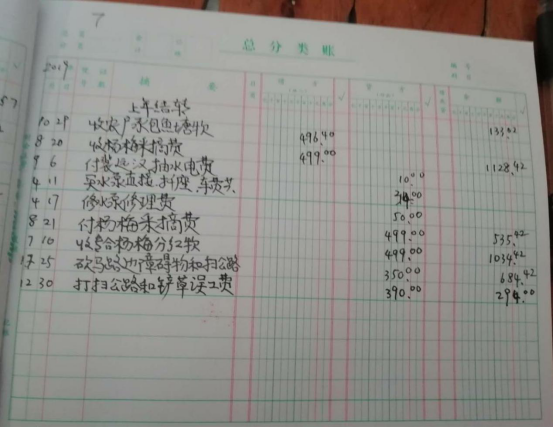 7
总分类账
2019
摘要
上年结转 133.42
10 29 收农户承包鱼塘款 496.40
8 20 收杨梅采摘费 499.00 1128.42
9 6 付装 抽水电费 10.00
4 11 买水泵直接 插座 车费共
4 17 修水泵修理费 50.00
8 21 付杨梅采摘费 499.00 535.42
7 10 收 合杨梅分红款 499.00 1034.42
25 砍马路边障碍物和扫公路 350.00 684.42
12 30 打扫公路和铲草误工费 390.00 294.00